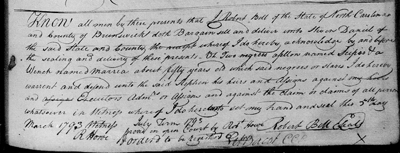 Know all men by these presents that I Robert Bell of the State of North Carolina
and County of Brunswick doth Bargain sell and deliver unto Stephen Daniel of
the said State and County, the receipt whereof I do hereby acknowledge by and before
the sealing and delivery of these presents. The Two negroes fellow named a
Wench named Marria about fifty years old which said negroes or slaves I do hereby
warrent and defend unto the said Stephen his heirs and Assigns against my heirs
and Executors Admrs. or Assigns and against the claim or claims of all persons
whatsoever in Witness whereof I do hereunto set my hand and seal the 5th day
March 1793 Witness July Term 1793
R Howe proved in open Court by Robt. Howe Robert Bell Seal
Ordered to be registered